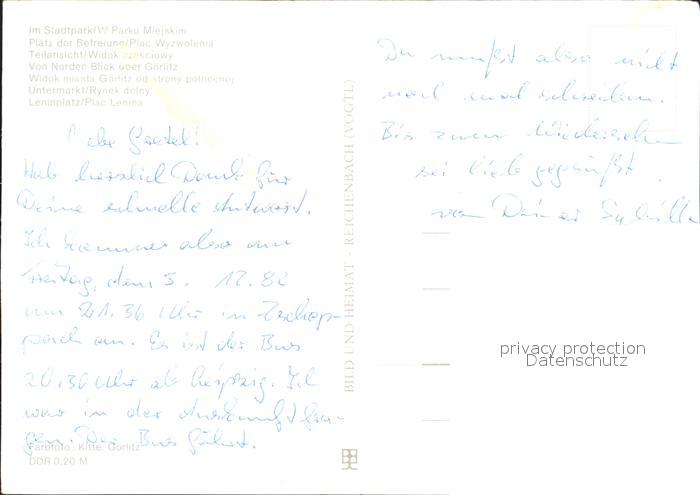 Im Stadtpark/W Parku Miejskim
Platz der Befreiung/Plac Wyzwolenia
Teilansicht/Widok częściowy
Von Norden Blick über Görlitz
Widok miasta Görlitz od strony północnej
Untermarkt/Rynek dolny
Leninplatz/Plac Lenina
Liebe Gretel!
Hab herzlich Dank für
Deine schnelle Antwort.
Ich komme also am
Freitag, dem 3. 12.82
um 21.36 Uhr in Zschop-
pach an. Es ist der Bus
20.30 Uhr ab Leipzig. Ich
war in der Auskunft fra-
gen. Der Bus fährt.
Farbfoto: Kitte, Görlitz
DDR 0,20 M
BILD UND HEIMAT · REICHENBACH (VOGTL)
Du mußt also nicht
noch mal schreiben.
Bis zum Wiedersehn
sei lieb gegrüßt
von Deiner Sybille
privacy protection
Datenschutz